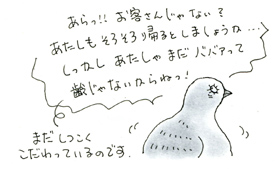 あらっ!! お客さんじゃない?
あたしもそろそろ帰るとしましょうか…
しっかし あたしゃまだババァって
齢じゃないからねっ!
まだしつこく
こだわっているのです.